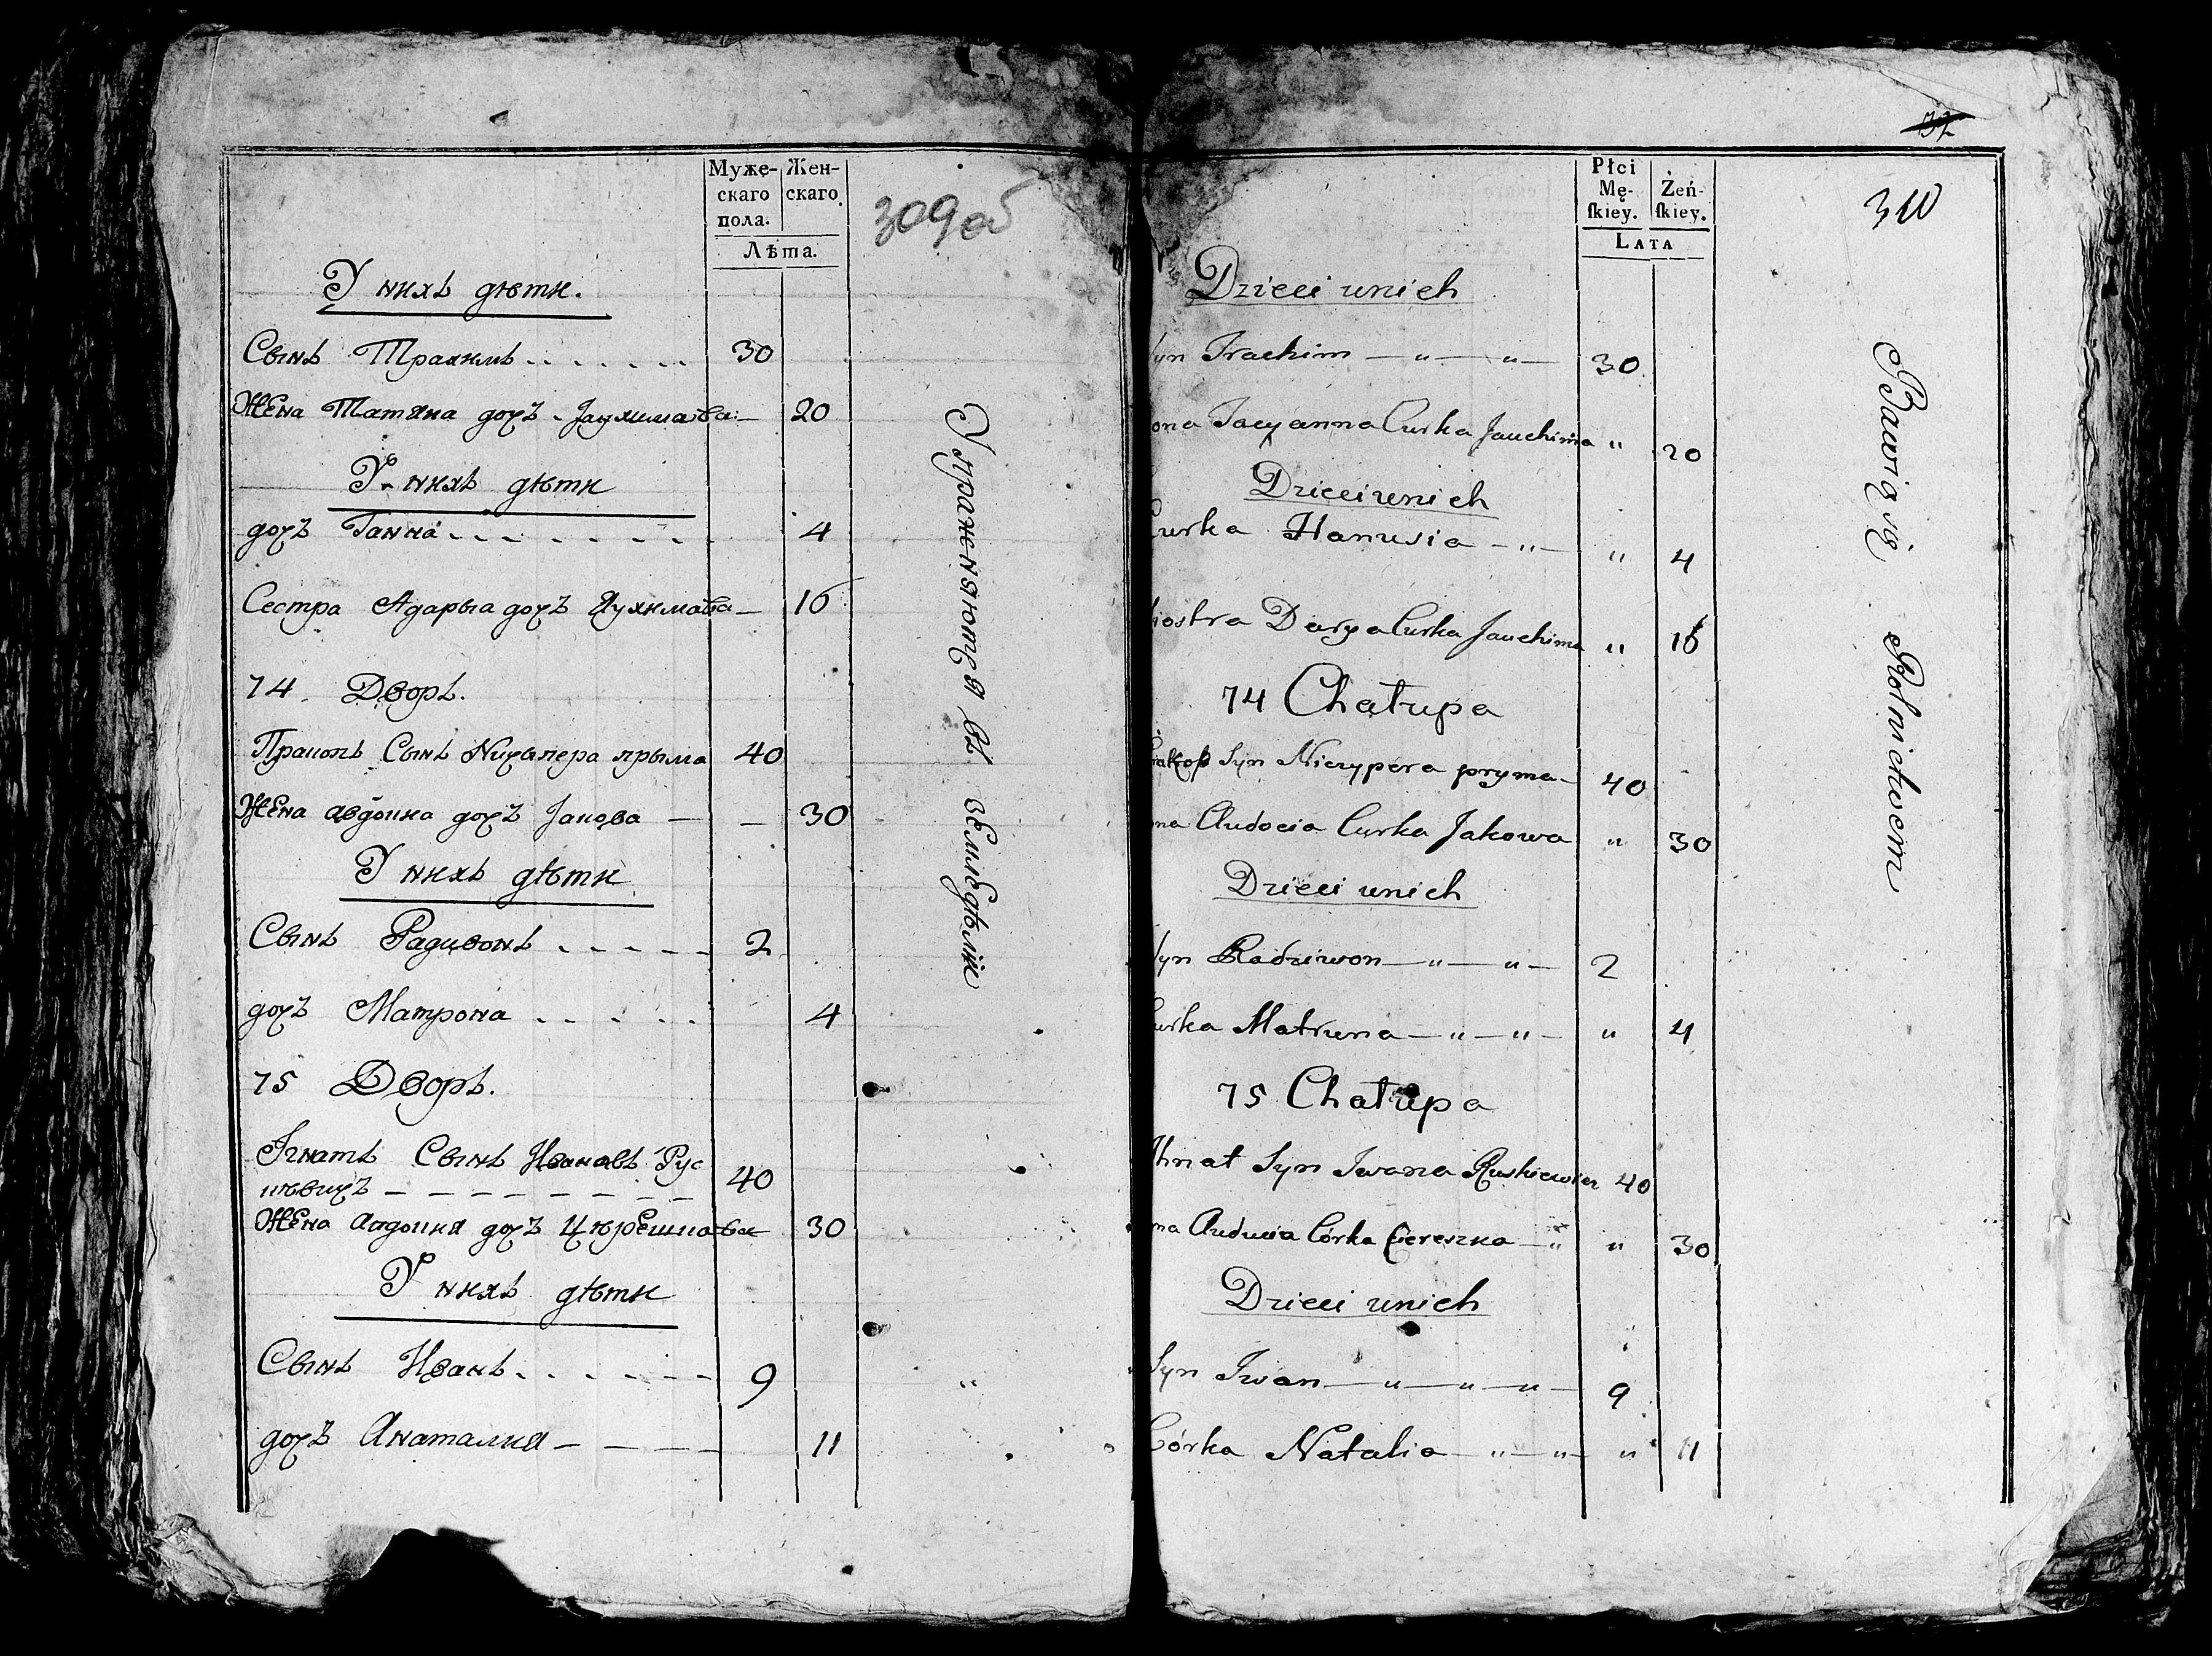 Муже-
скаго
пола.
Жен-
скаго
Лѣта.
309 об
У нихъ дѣти.
Сынъ Трахимъ 30
Жена Татяна дочъ Јаухимава 20
У нихъ дѣти
дочъ Ганна 4
Сестра Адарыа дочъ Яухимава 16
74 Дворъ.
Пракопъ Сынъ Ничипера прыма 40
Жена авдокиа дочъ Јакова 30
У нихъ дѣти
Сынъ Радивонъ 2
дочъ Матрона 4
75 Дворъ.
Ігнатъ Сынъ Ивановъ Рус
кѣвичъ 40
Жена Авдокия дочъ Цѣрешкава 30
У нихъ дѣти
Сынъ Иванъ 9
дочъ Анаталия 11
Упражняются въ земледѣліи
32
Płci
Mę-
skiey.
Żeń-
skiey.
LATA
310
Dzieci unich
Syn Trachim — " — " — 30
ona Tacyanna Curka Jauchima " 20
Dzieci unich
Curka Hanusia — " — " 4
Siostra Darya Curka Jauchima " 16
74 Chałupa
Prakop Syn Niczypera pryma — 40
ona Audocia Curka Jakowa " 30
Dzieci unich
Syn Radziwon — " — " — 2
Curka Matruna — " — " — " 4
75 Chałupa
Ihnat Syn Iwana Ruskiewicz 40
ona Auducia Córka Ciereszka — " " 30
Dzieci unich
Syn Iwan — " — " — " — 9
Córka Natalia — " — " — " 11
Bawią się Rolnictwem